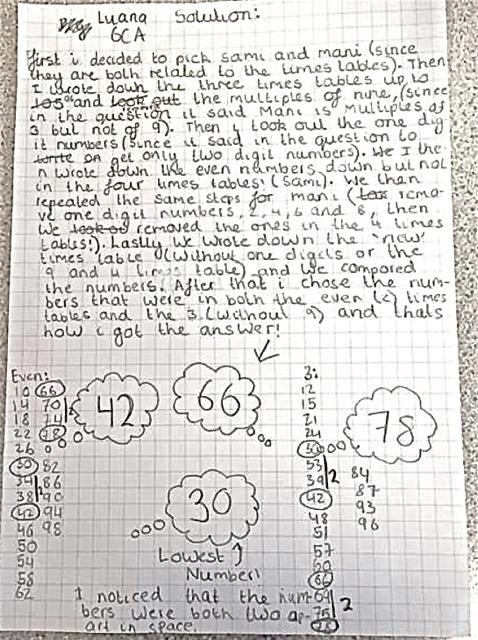 Luana Solution:
6CA
First i decided to pick sami and mani (since
they are both related to the times tables). Then
I wrote down the three times tables up to
105 and took out the multiples of nine, (since
in the question it said Mani is Multiples of
3 but not of 9). Then i took out the one dig
it numbers (since it said in the question to
write on get only two digit numbers). We I the
n wrote down the even numbers down but not
in the four times tables! (Sami). We then
repeated the same steps for mani ( remo
ve one digit numbers, 2, 4, 6 and 8, then
We took out removed the ones in the 4 times
tables!). Lastly we wrote down the 'new'
times table (Without one digits or the
9 and 4 times table) and we compared
the numbers. After that i chose the num-
bers that were in both the even (2) times
tables and the 3 (without 9) and thats
how i got the answer!
Even:
10 66
14 70
18 74
22 78
26
30 82
34 86
38 90
42 94
46 98
50
54
58
62
42
66
78
30
Lowest
Number!
3:
12
15
21
24
30
33
39 2 84
42 87
48 93
51 96
57
60
66
69
75 2
78
I noticed that the num-
bers were both two ap-
art in space.